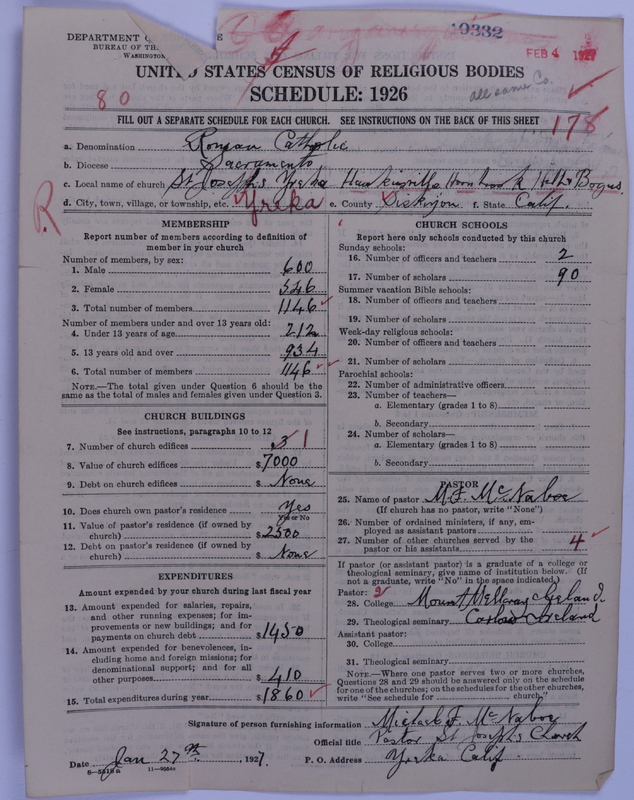 DEPARTMENT
BUREAU OF THE
WASHINGTON
19332
FEB 4 1927
UNITED STATES CENSUS OF RELIGIOUS BODIES
SCHEDULE: 1926
80
all same Co.
FILL OUT A SEPARATE SCHEDULE FOR EACH CHURCH. SEE INSTRUCTIONS ON THE BACK OF THIS SHEET
178
a. Denomination Roman Catholic
b. Diocese Sacramento
c. Local name of church St Josephs Yreka Hawkinsville Hornbrook Hilt & Bogus
d. City, town, village, or township, etc. Yreka e. County Siskiyou f. State Calif.
R
MEMBERSHIP
Report number of members according to definition of
member in your church
Number of members, by sex:
1. Male 600
2. Female 546
3. Total number of members 1146
Number of members under and over 13 years old:
4. Under 13 years of age 212
5. 13 years old and over 934
6. Total number of members 1146
NOTE.—The total given under Question 6 should be the
same as the total of males and females given under Question 3.
CHURCH BUILDINGS
See instructions, paragraphs 10 to 12
7. Number of church edifices 3 1
8. Value of church edifices $ 7000
9. Debt on church edifices $ None
10. Does church own pastor's residence? Yes
Yes or No
11. Value of pastor's residence (if owned by
church) $ 2500
12. Debt on pastor's residence (if owned by
church) $ None
EXPENDITURES
Amount expended by your church during last fiscal year
13. Amount expended for salaries, repairs,
and other running expenses; for im-
provements or new buildings; and for
payments on church debt $ 1450
14. Amount expended for benevolences, in-
cluding home and foreign missions; for
denominational support; and for all
other purposes $ 410
15. Total expenditures during year $ 1860
CHURCH SCHOOLS
Report here only schools conducted by this church
Sunday schools:
16. Number of officers and teachers 2
17. Number of scholars 90
Summer vacation Bible schools:
18. Number of officers and teachers
19. Number of scholars
Week-day religious schools:
20. Number of officers and teachers
21. Number of scholars
Parochial schools:
22. Number of administrative officers
23. Number of teachers—
a. Elementary (grades 1 to 8)
b. Secondary
24. Number of scholars—
a. Elementary (grades 1 to 8)
b. Secondary
PASTOR
25. Name of pastor M. F. McNaboe
(If church has no pastor, write "None")
26. Number of ordained ministers, if any, em-
ployed as assistant pastors
27. Number of other churches served by the
pastor or his assistants 4
If pastor (or assistant pastor) is a graduate of a college or
theological seminary, give name of institution below. (If
not a graduate, write "No" in the space indicated.)
Pastor: 2
28. College Mount Melleray Ireland
29. Theological seminary Carlow Ireland
Assistant pastor:
30. College
31. Theological seminary
NOTE.—Where one pastor serves two or more churches,
Questions 28 and 29 should be answered only on the schedule
for one of the churches; on the schedules for the other churches,
write "See schedule for church."
Signature of person furnishing information Michael F. McNaboe
Official title Pastor St Josephs Church
Date Jan 27th, 1927. P. O. Address Yreka Calif.
8—5519a 11—9554a